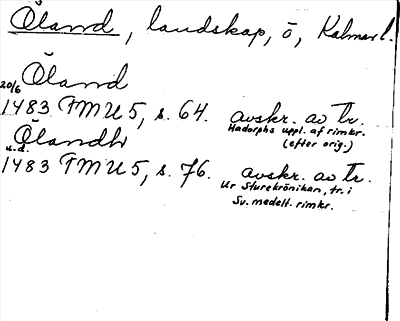 Öland, landskap, ö, Kalmar l.
Öland
20/6
1483 FMU5, s. 64. avskr. av tr.
Hadorphs uppl. af rimkr.
(efter orig.)
Ölandh
u.d.
1483 FMU5, s. 76. avskr. av tr.
Ur Sturekrönikan, tr. i
Sv. medelt. rimkr.